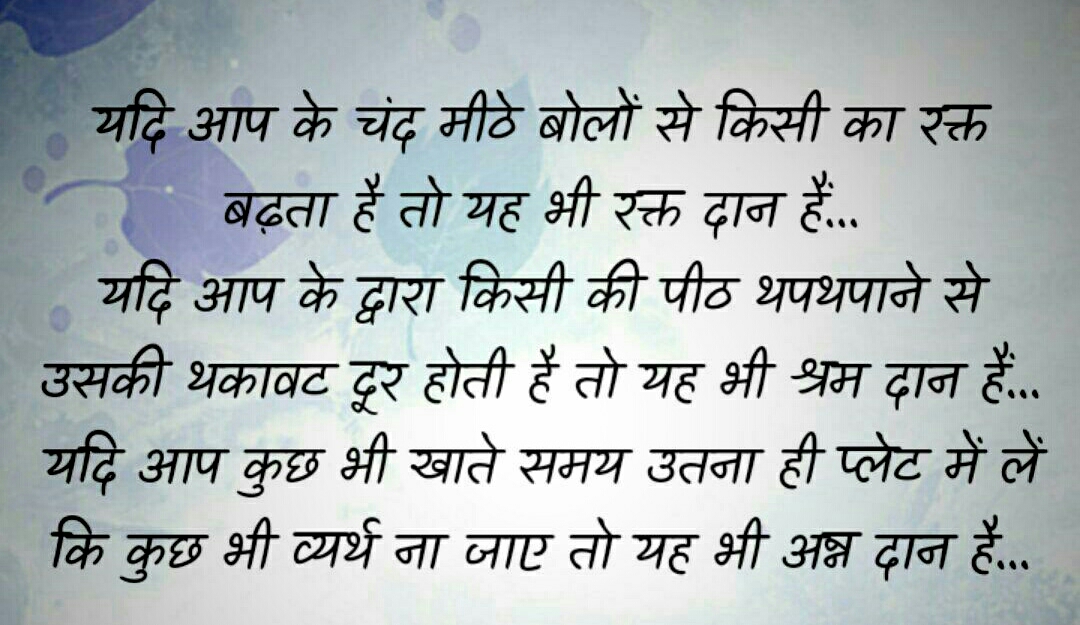 यदि आप के चंद मीठे बोलों से किसी का रक्त
बढ़ता है तो यह भी रक्त दान हैं...
यदि आप के द्वारा किसी की पीठ थपथपाने से
उसकी थकावट दूर होती है तो यह भी श्रम दान हैं...
यदि आप कुछ भी खाते समय उतना ही प्लेट में लें
कि कुछ भी व्यर्थ ना जाए तो यह भी अन्न दान है...